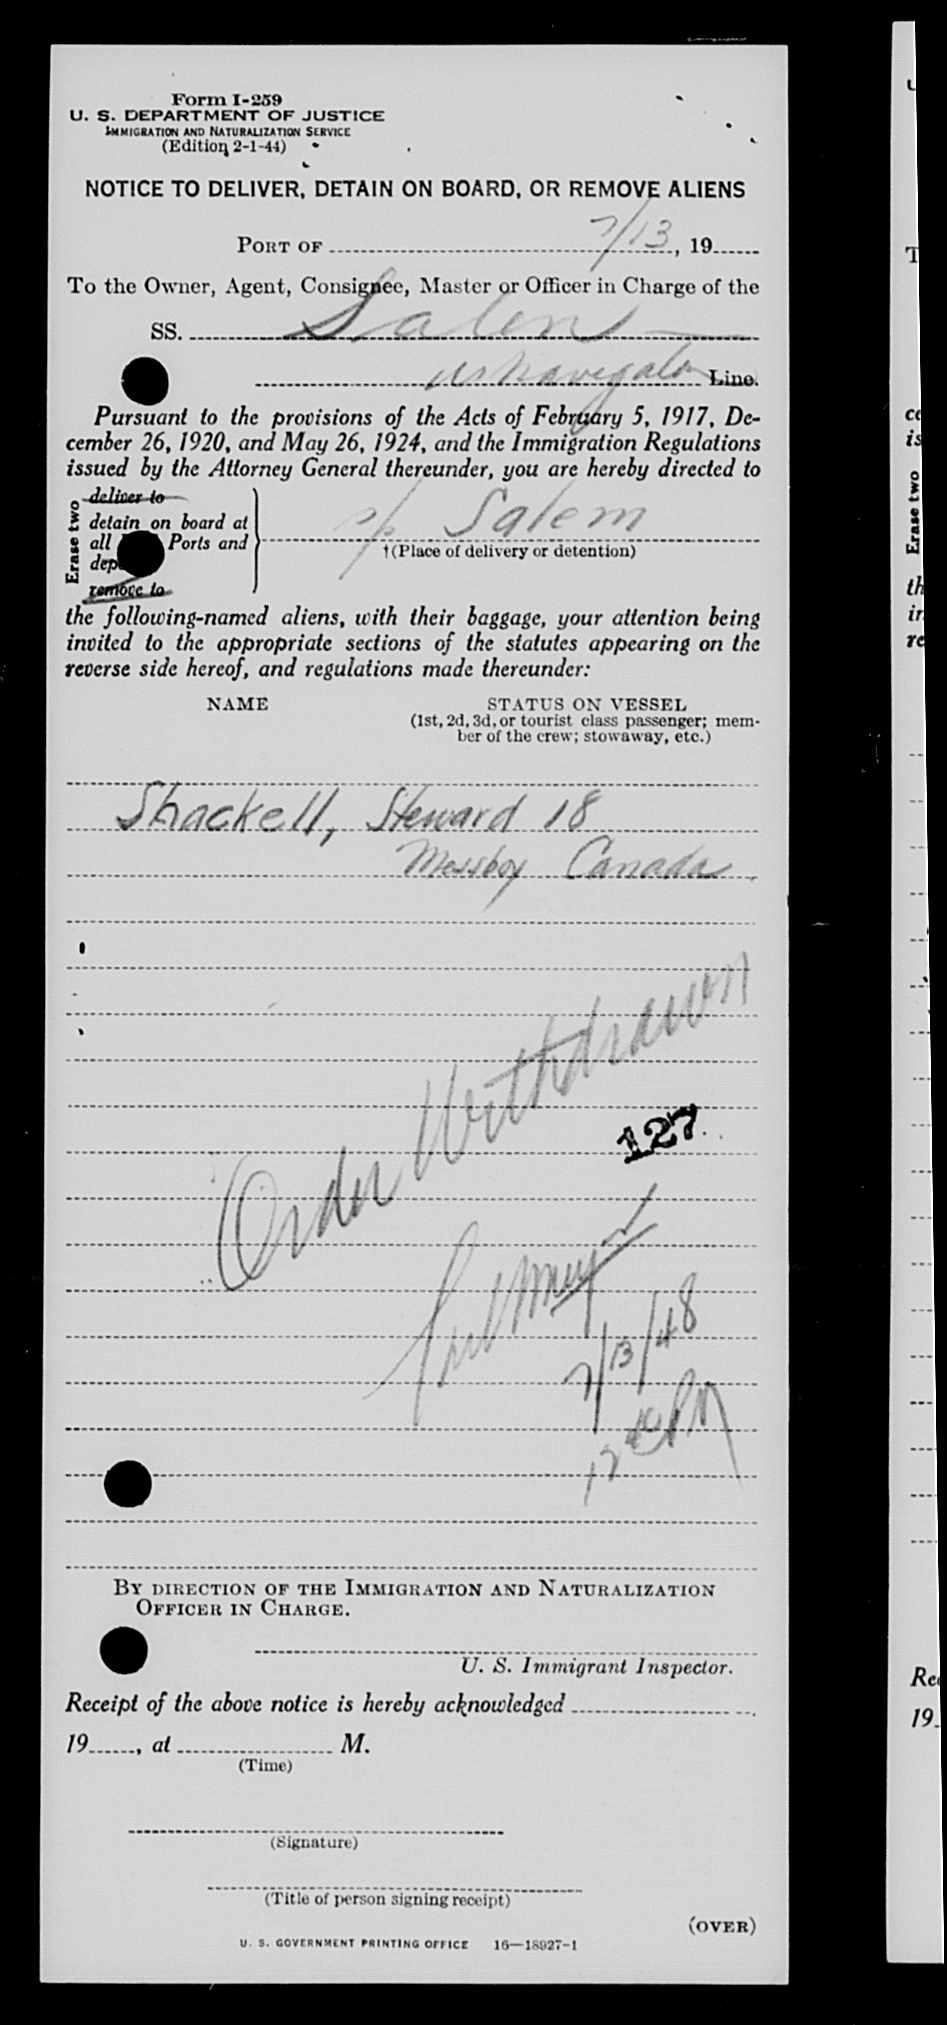 Form I-259
U. S. DEPARTMENT OF JUSTICE
IMMIGRATION AND NATURALIZATION SERVICE
(Edition 2-1-44)
NOTICE TO DELIVER, DETAIN ON BOARD, OR REMOVE ALIENS
PORT OF 7/13, 19
To the Owner, Agent, Consignee, Master or Officer in Charge of the
SS. Salem
us navigation Line.
Pursuant to the provisions of the Acts of February 5, 1917, De-
cember 26, 1920, and May 26, 1924, and the Immigration Regulations
issued by the Attorney General thereunder, you are hereby directed to
Erase two
deliver to
detain on board at
all Ports and
dep
remove to
s/s Salem
†(Place of delivery or detention)
the following-named aliens, with their baggage, your attention being
invited to the appropriate sections of the statutes appearing on the
reverse side hereof, and regulations made thereunder:
NAME STATUS ON VESSEL
(1st, 2d, 3d, or tourist class passenger; mem-
ber of the crew; stowaway, etc.)
Shackell, Steward 18
Messboy Canada
Order Withdrawn
127
7/13/48
12 PM
BY DIRECTION OF THE IMMIGRATION AND NATURALIZATION
OFFICER IN CHARGE.
U. S. Immigrant Inspector.
Receipt of the above notice is hereby acknowledged
19, at M.
(Time)
(Signature)
(Title of person signing receipt)
(OVER)
U. S. GOVERNMENT PRINTING OFFICE 16—18927-1